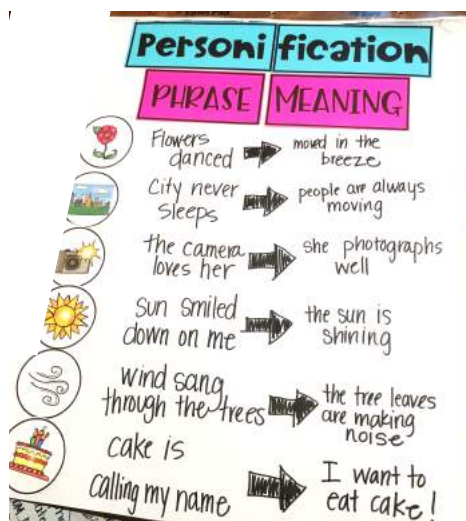 Personification
PHRASE MEANING
Flowers
danced
moved in the
breeze
City never
sleeps
people are always
moving
the camera
loves her
she photographs
well
sun smiled
down on me
the sun is
shining
wind sang
through the trees
the tree leaves
are making
noise
cake is
calling my name
I want to
eat cake!